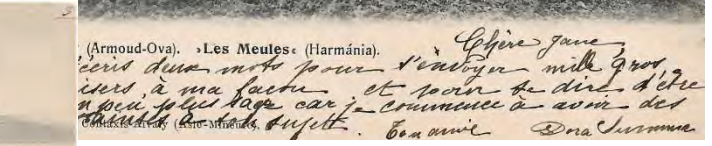 (Armoud-Ova). »Les Meules« (Harmánia). Chère Jane
écris deux mots pour t'envoyer mille gros
isers, à ma façon et pour te dire d'être
n peu plus sage car je commence à avoir des
à ton sujet. Ton amie Dora
(Asie-Mineure).